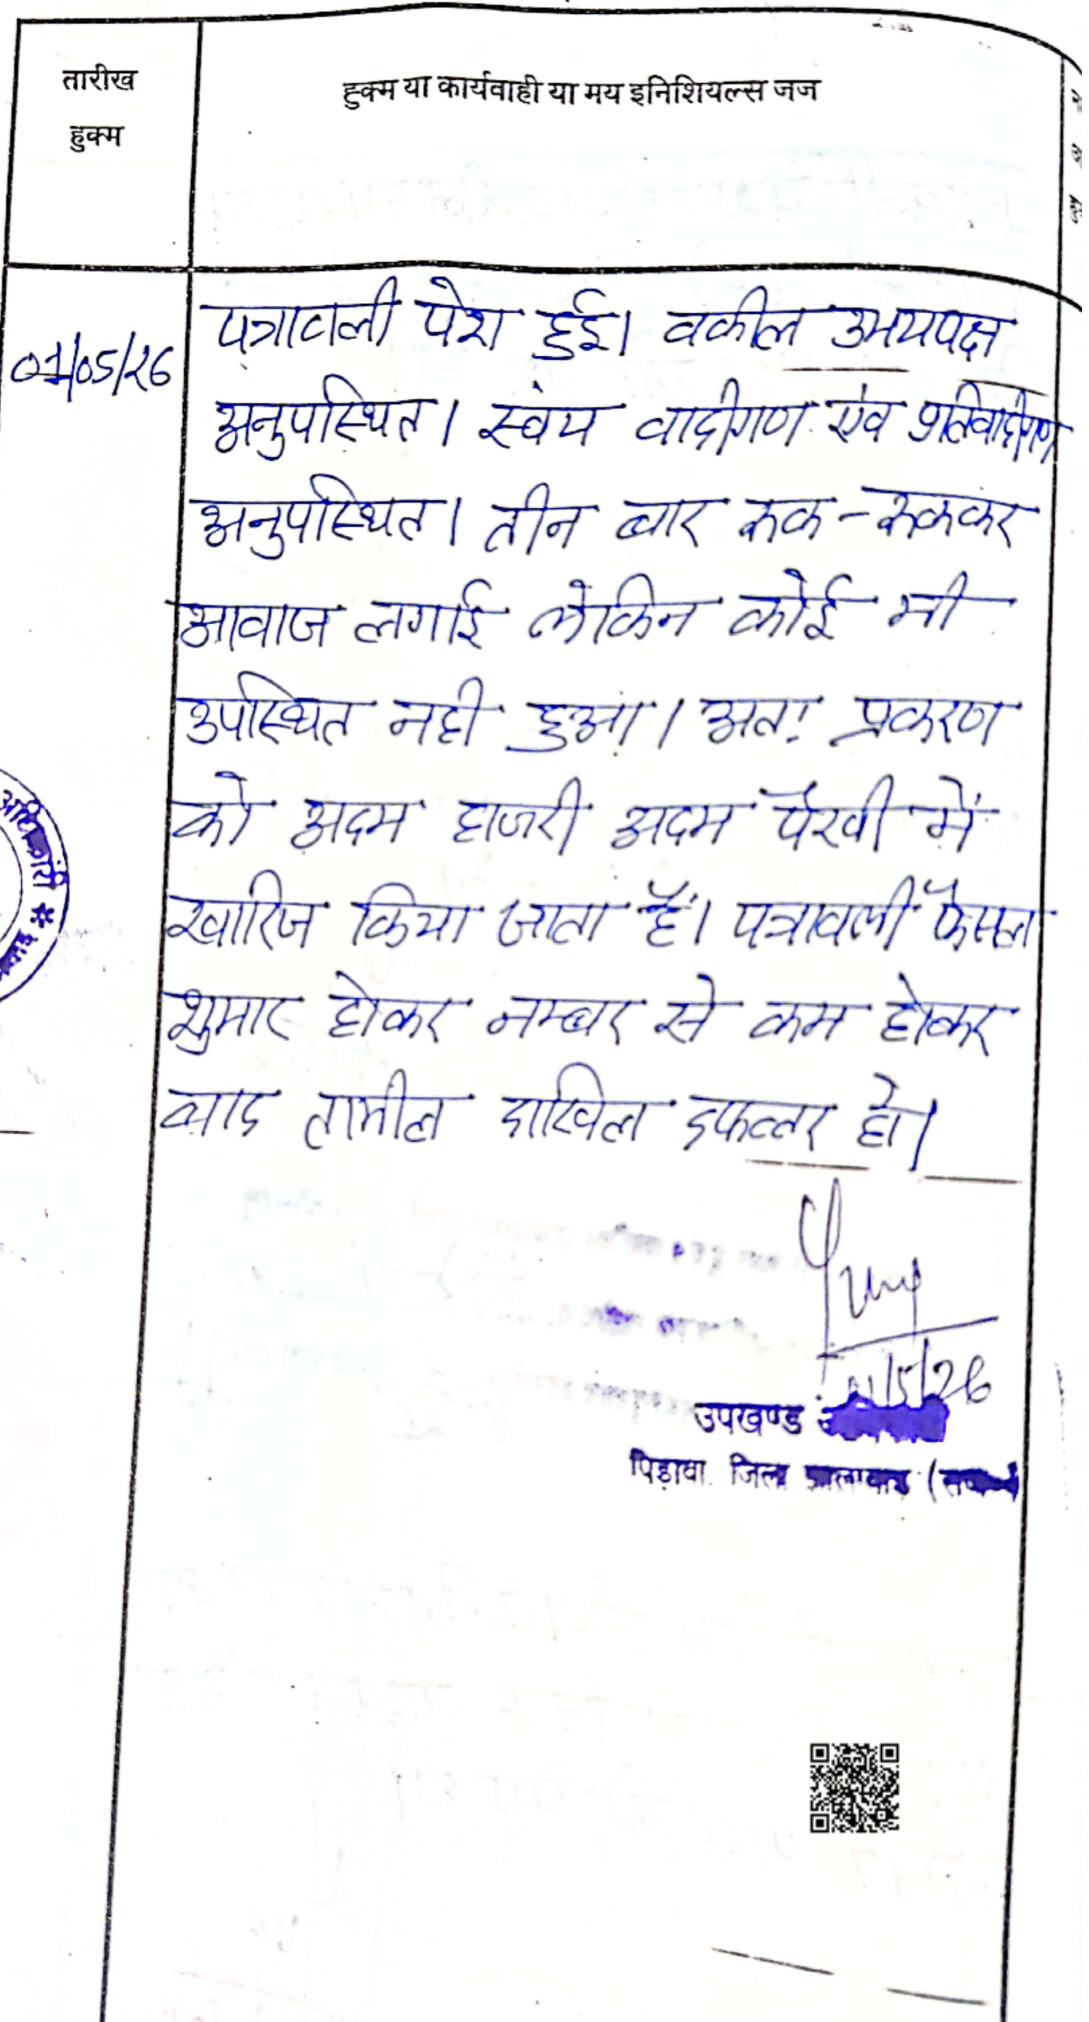 तारीख
हुक्म
हुक्म या कार्यवाही या मय इनिशियल्स जज
01/05/26
पत्रावली पेश हुई। वकील उभयपक्ष
अनुपस्थित। स्वंय वादीगण एंव प्रतिवादीगण
अनुपस्थित। तीन बार रूक-रूककर
आवाज लगाई लेकिन कोई भी
उपस्थित नही हुआ। अतः प्रकरण
को अदम हाजरी अदम पैरवी में
खारिज किया जाता हैं। पत्रावली फैसला
शुमार होकर नम्बर से कम होकर
बाद तामील दाखिल दफ्तर हो।
1/5/26
उपखण्ड
पिड़ावा जिला झालावाड़